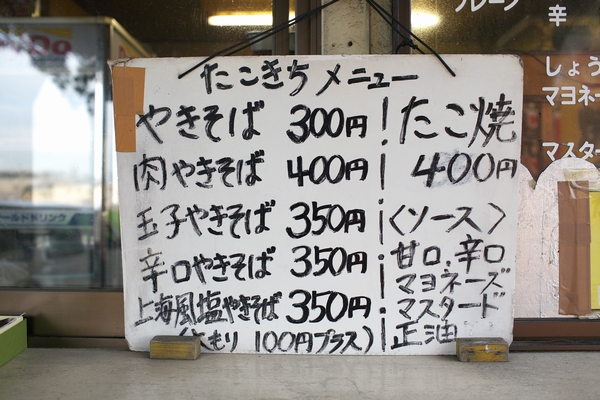 たこきち メニュー
やきそば 300円
肉やきそば 400円
玉子やきそば 350円
辛口やきそば 350円
上海風塩やきそば 350円
大もり 100円プラス)
たこ焼
400円
<ソース>
甘口、辛口
マヨネーズ
マスタード
正油
ールドドリンク
辛
しょう
マヨネ
マスター